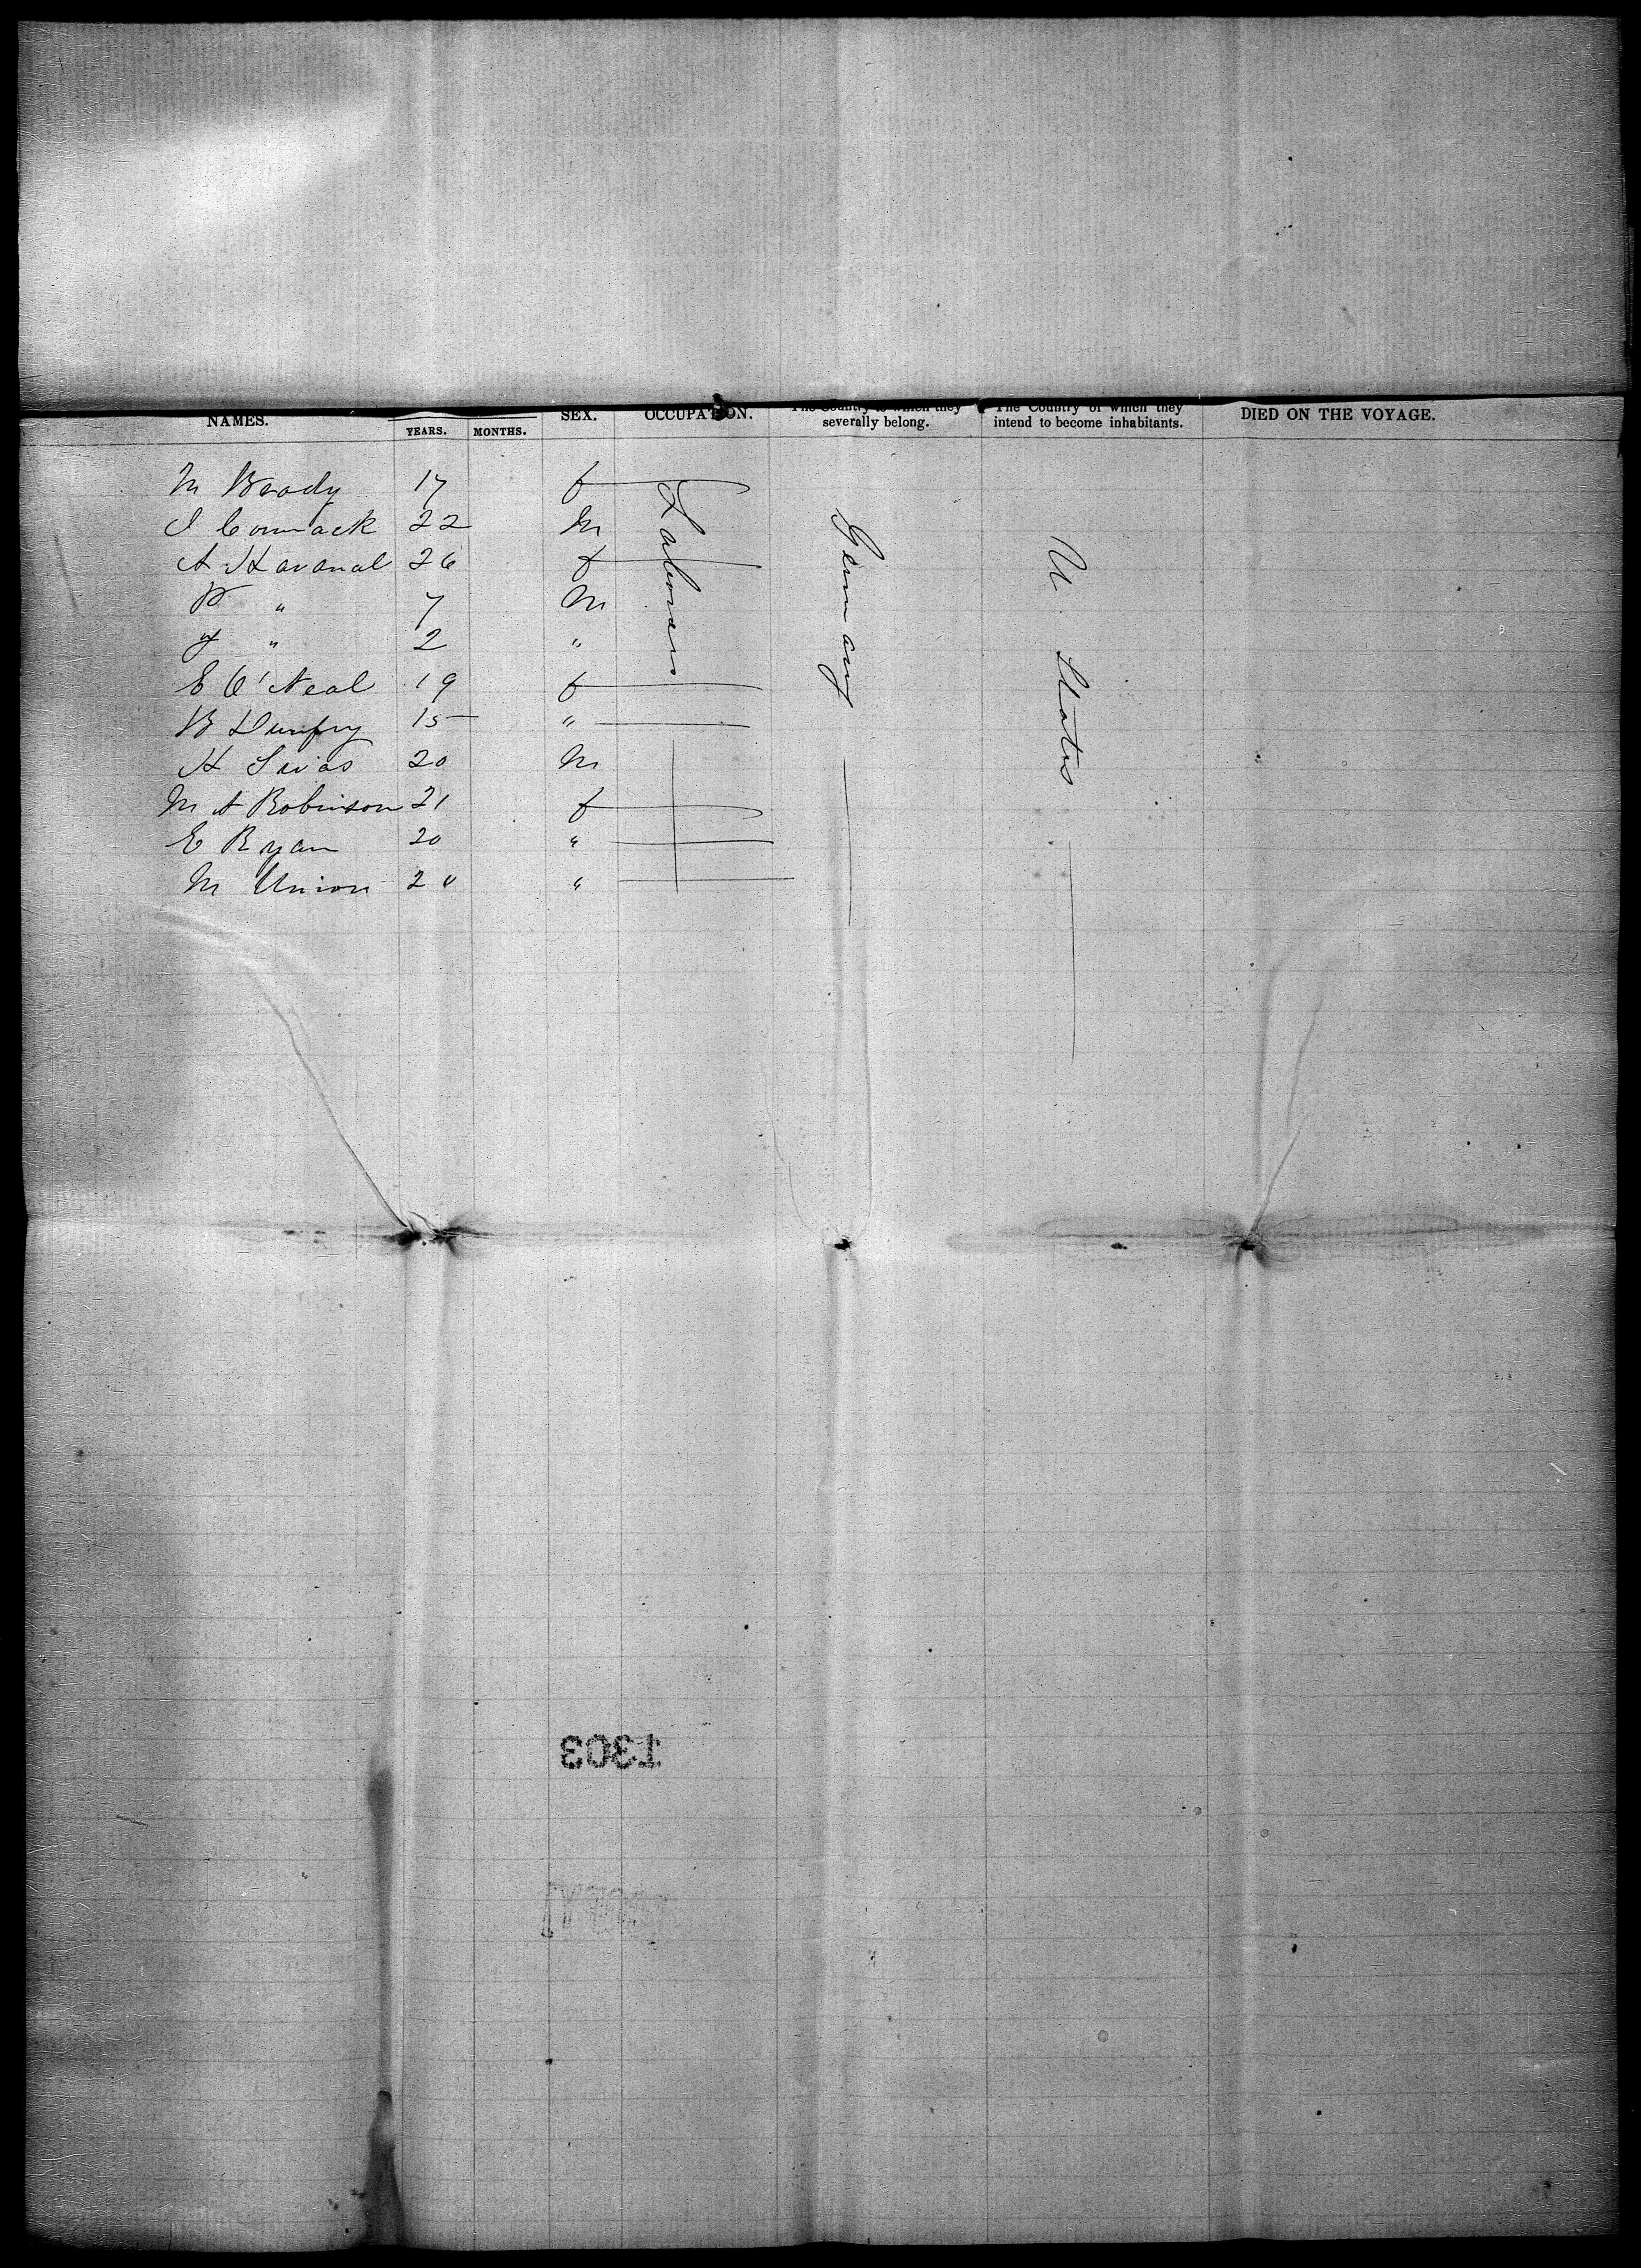 NAMES. YEARS. MONTHS. SEX. OCCUPATION. The Country to which they severally belong. The Country of which they intend to become inhabitants. DIED ON THE VOYAGE.
M Brady 17 f
J Cormack 22 M
A Kavanal 26 f
" 7 M
" 2 "
E O'Neal 19 f
B Dunfry 15 "
H 20 M
M A Robinson 21 f
E Ryan 20 "
M Union 20 "
Laborers
Germany
U. States
1303